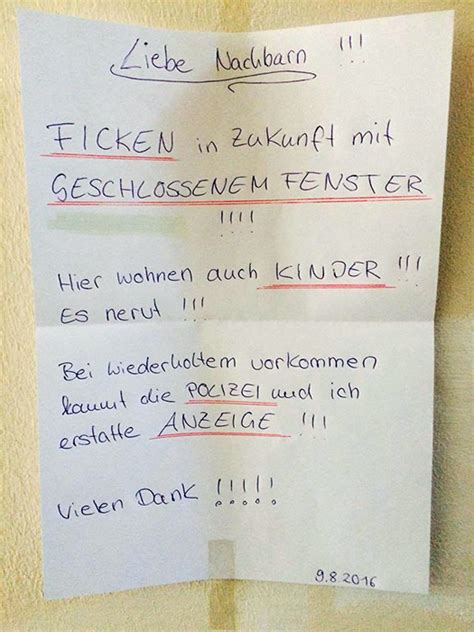 Liebe Nachbarn !!!
FICKEN in Zukunft mit
GESCHLOSSENEM FENSTER
!!!!
Hier wohnen auch KINDER !!!
Es nervt !!!
Bei wiederholtem vorkommen
kommt die POLIZEI und ich
erstatte ANZEIGE !!!
Vielen Dank !!!!!
9.8.2016